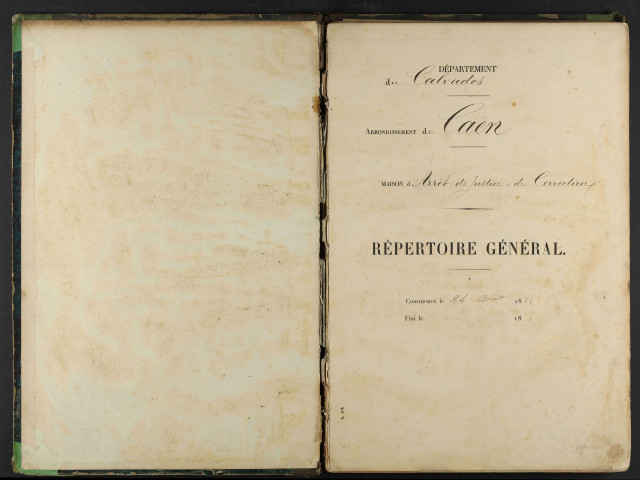 DÉPARTEMENT
du Calvados
ARRONDISSEMENT de Caen
MAISON d'Arrêt de Justice & de Correction
RÉPERTOIRE GÉNÉRAL.
Commencé le 24 Août 18
Fini le 18